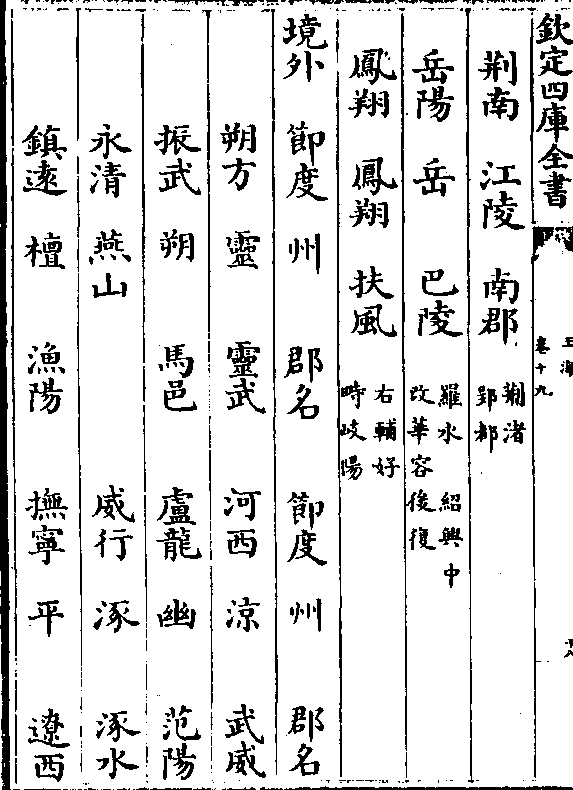 欽定四庫全書
卷十九
荆南 江陵 南郡 荆渚
郢都
岳陽 岳 巴陵 羅水 紹興中
改華容後復
鳳翔 鳳翔 扶風 右輔好
畤岐陽
境外 節度 州 郡名 節度 州 郡名
朔方 靈 靈武 河西 涼 武威
振武 朔 馬邑 盧龍 幽 范陽
永清 燕山 威行 涿 涿水
鎮遠 檀 漁陽 撫寧 平 遼西